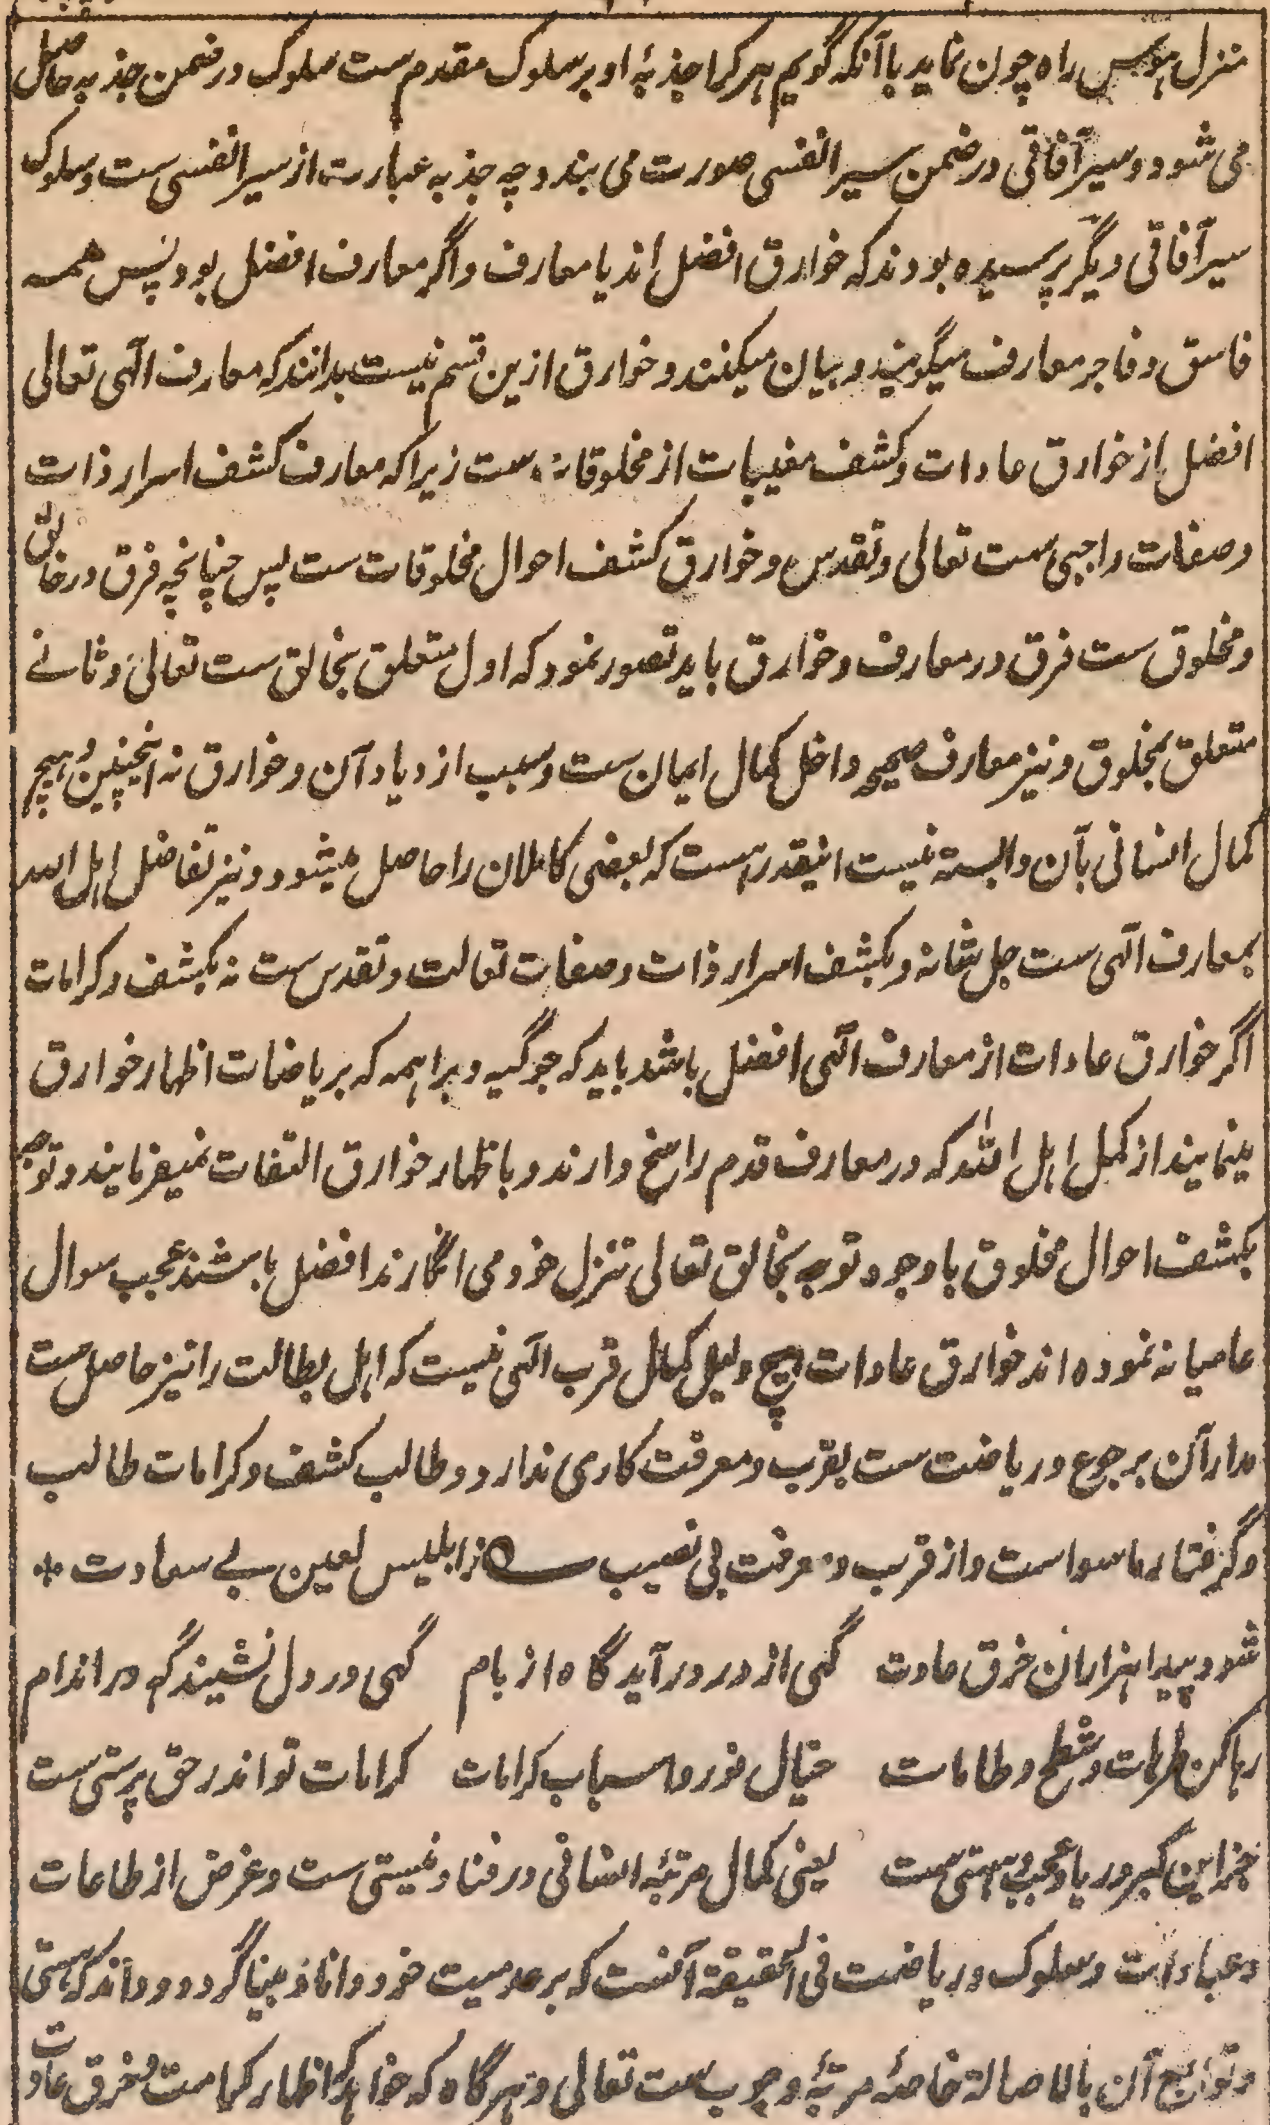 منزل بوس راه چون نماید با آنکه گویم هر کرا جذبهٔ او بر سلوک مقدم ست سلوک در ضمن جذبه حاصل
می شود و سیر آفاقی در ضمن سیر انفسی صورت می بندد چه جذبه عبارت از سیر انفسی ست و سلوک
سیر آفاقی دیگر پرسیده بودند که خوارق افضل اند یا معارف و اگر معارف افضل بود پس همه
فاسق و فاجر معارف میگویند و بیان میکنند و خوارق ازین قسم نیست بدانند که معارف الٰهی تعالی
افضل از خوارق عادات و کشف مغیبات از مخلوقات ست زیرا که معارف کشف اسرار ذات
و صفات واجبی ست تعالی و تقدس و خوارق کشف احوال مخلوقات ست پس چنانچه فرق در خالق
و مخلوق ست فرق در معارف و خوارق باید تصور نمود که اول متعلق بخالق ست تعالیٰ و ثانے
متعلق بمخلوق و نیز معارف صحیحه داخل کمال ایمان ست و سبب ازدیاد آن و خوارق نه اینچنین و هیچ
کمال انسانی بآن وابسته نیست اینقدر هست که بعضی کاملان را حاصل میشود و نیز تفاضل اهل الله
بمعارف الٰهی ست جل شانه و بکشف اسرار ذات و صفات تعالت و تقدس ست نه بکشف و کرامات
اگر خوارق عادات از معارف الٰهی افضل باشد باید که جوگیه و براهمه که بریاضات اظهار خوارق
مینمایند از کمل اهل الله که در معارف قدم راسخ دارند و باظهار خوارق التفات نمیفرمایند و توجه
بکشف احوال مخلوق با وجود توجه بخالق تعالی تنزل خود می انگارند افضل باشند عجب سوال
عامیانه نموده اند خوارق عادات هیچ دلیل کمال قرب الٰهی نیست که اهل بطالت را نیز حاصل ست
مدار آن بر جوع و ریاضت ست بقرب و معرفت کاری ندارد و طالب کشف و کرامات طالب
و گرفتار ما سواست و از قرب و معرفت بی نصیب ؎ ز ابلیس لعین بے سعادت *
شود پیدا هزاران خرق عادت گهی از در در آید گاه از بام گهی در دل نشیند گه در اندام
رها کن طرهات و شطح و طامات خیال نور و اسباب کرامات کرامات تو اندر حق پرستی ست
جز این کبر و ریا و عجب و هستی ست یعنی کمال مرتبهٔ انسانی در فنا و نیستی ست و غرض از طاعات
و عبادات و سلوک و ریاضت فی الحقیقة آنست که بر عدمیت خود دانا و بینا گردد و داند که هستی
و توابع آن بالاصالة خاصهٔ مرتبهٔ وجوب ست تعالی و هر گاه که خواهد که اظهار کرامت و خرق عادات